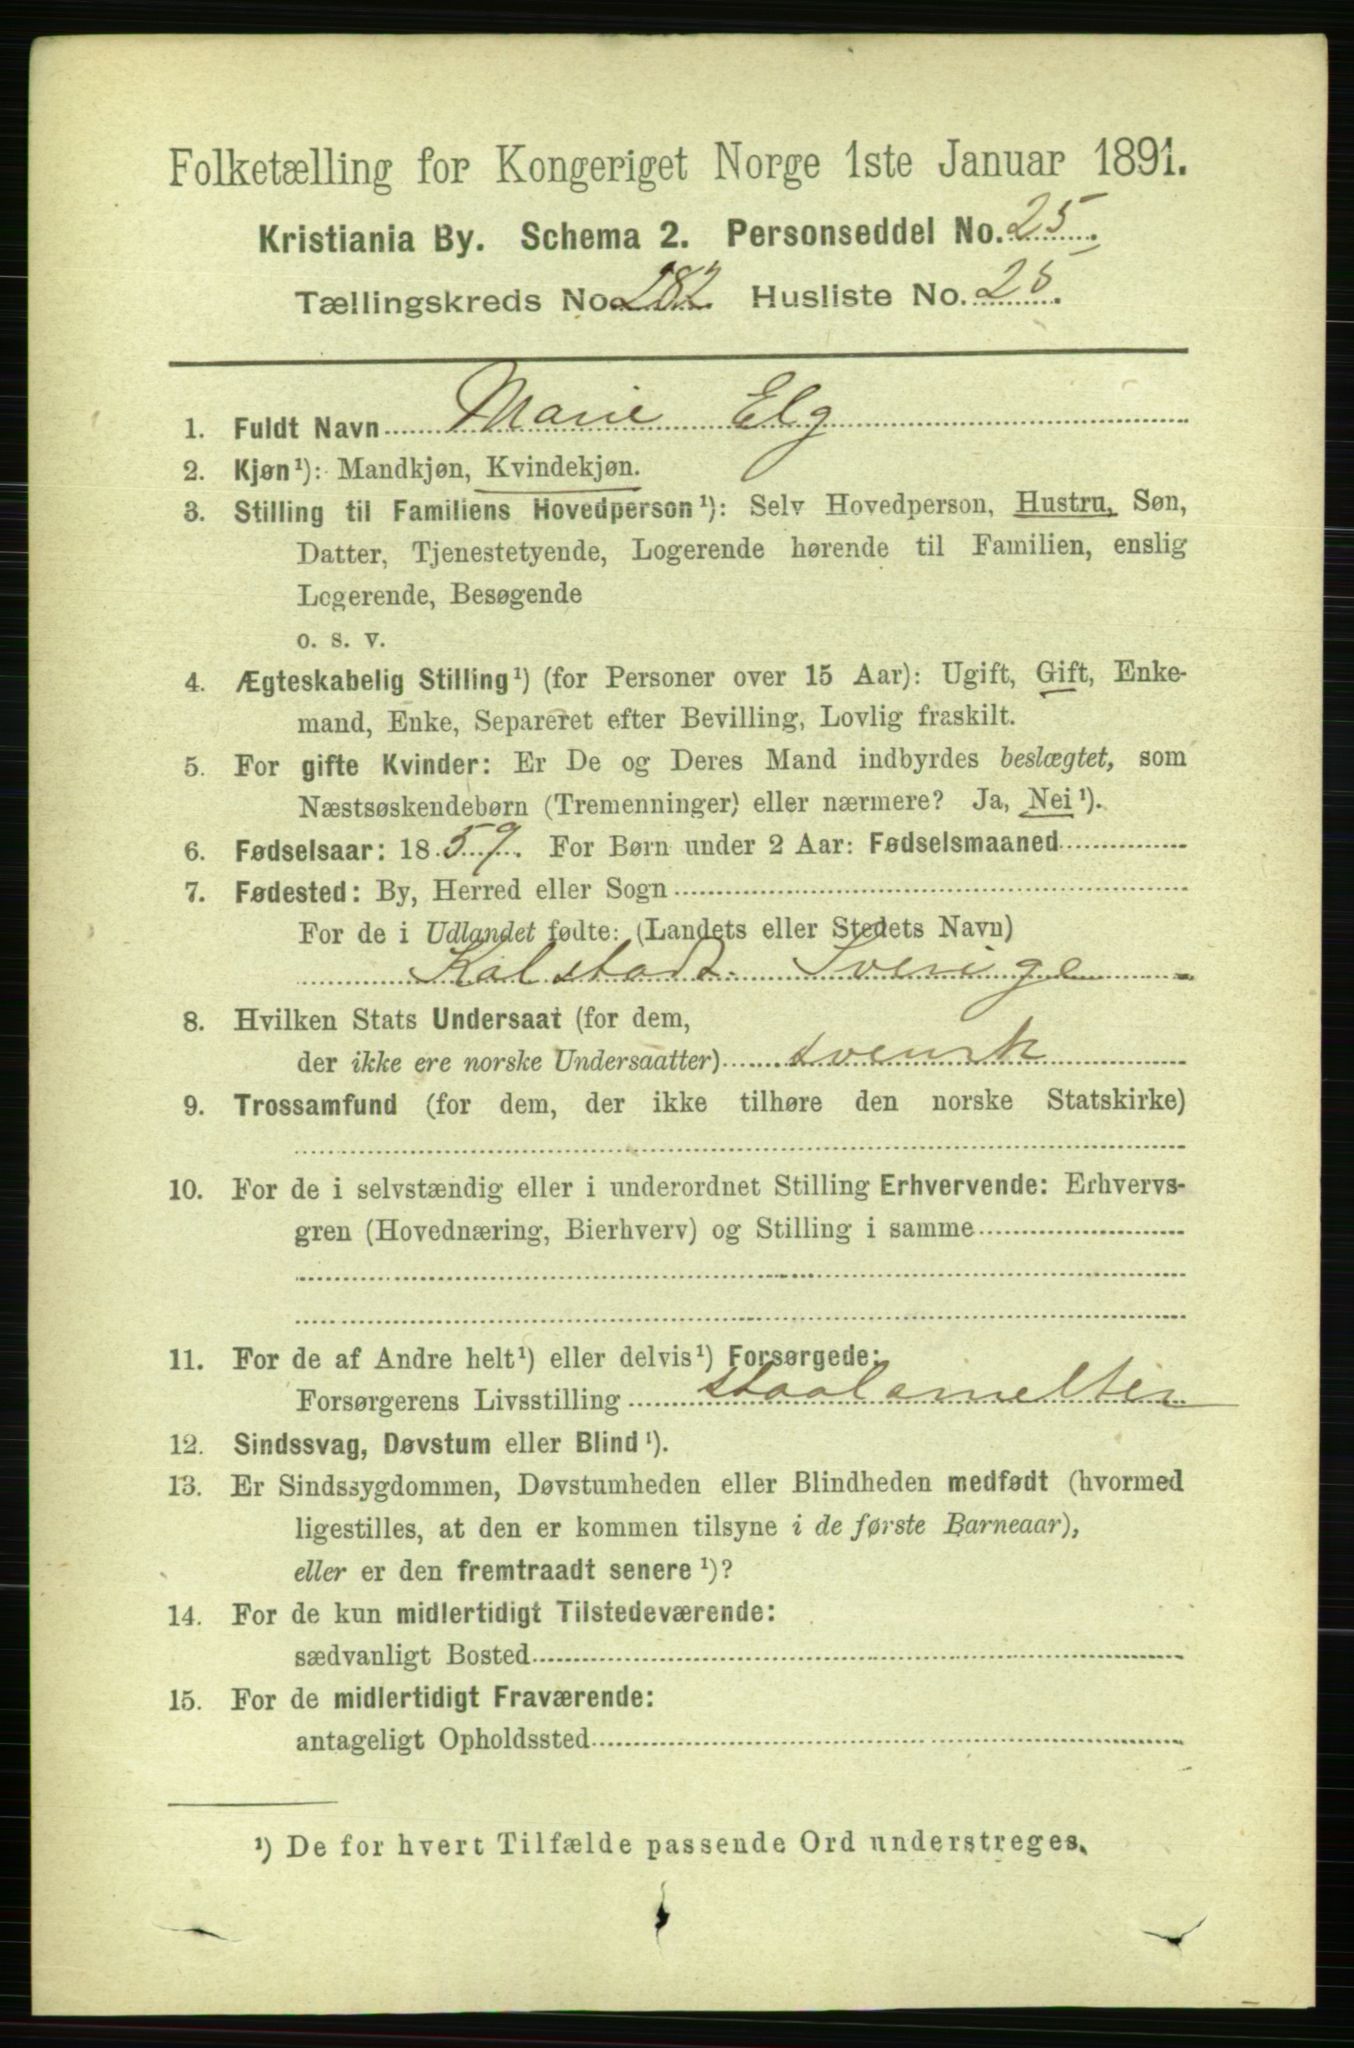 Folketælling for Kongeriget Norge 1ste Januar 1891.
Kristiania By. Schema 2. Personseddel No. 25.
Tællingskreds No. 282. Husliste No. 25.
1. Fuldt Navn Marie Elg
2. Kjøn¹): Mandkjøn, Kvindekjøn.
3. Stilling til Familiens Hovedperson¹): Selv Hovedperson, Hustru, Søn,
Datter, Tjenestetyende, Logerende hørende til Familien, enslig
Logerende, Besøgende
o. s. v.
4. Ægteskabelig Stilling¹) (for Personer over 15 Aar): Ugift, Gift, Enke-
mand, Enke, Separeret efter Bevilling, Lovlig fraskilt.
5. For gifte Kvinder: Er De og Deres Mand indbyrdes beslægtet, som
Næstsøskendebørn (Tremenninger) eller nærmere? Ja, Nei¹).
6. Fødselsaar: 1859. For Børn under 2 Aar: Fødselsmaaned
7. Fødested: By, Herred eller Sogn
For de i Udlandet fødte: (Landets eller Stedets Navn)
Kalstad. Sverige
8. Hvilken Stats Undersaat (for dem,
der ikke ere norske Undersaatter) svensk
9. Trossamfund (for dem, der ikke tilhøre den norske Statskirke)
10. For de i selvstændig eller i underordnet Stilling Erhvervende: Erhvervs-
gren (Hovednæring, Bierhverv) og Stilling i samme
11. For de af Andre helt¹) eller delvis¹) Forsørgede:
Forsørgerens Livsstilling staalsmelter
12. Sindssvag, Døvstum eller Blind¹).
13. Er Sindssygdommen, Døvstumheden eller Blindheden medfødt (hvormed
ligestilles, at den er kommen tilsyne i de første Barneaar),
eller er den fremtraadt senere¹)?
14. For de kun midlertidigt Tilstedeværende:
sædvanligt Bosted
15. For de midlertidigt Fraværende:
antageligt Opholdssted
¹) De for hvert Tilfælde passende Ord understreges.